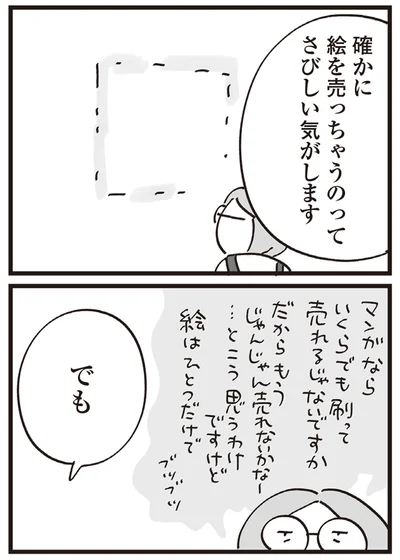 確かに
絵を売っちゃうのって
さびしい気がします
マンガなら
いくらでも刷って
売れるじゃないですか
だからもう
じゃんじゃん売れないかなー
…とこう思うわけ
ですけど
絵はひとつだけで
ブツブツ
でも